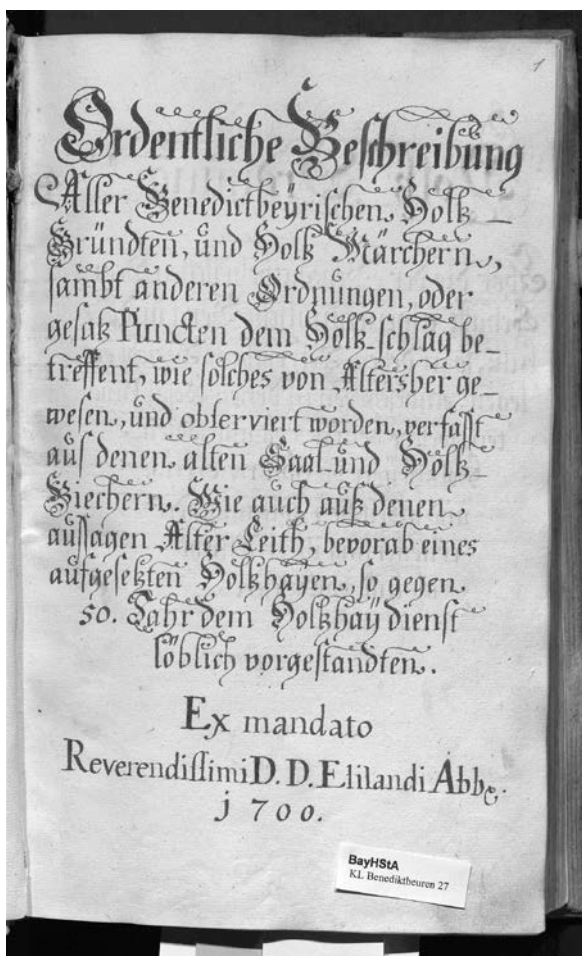 1
Ordentliche Beschreibung
Aller Benedictbeyrischen Holtz-
Gründten, und Holtz Märchern,
sambt anderen Ordnungen, oder
gesatz Puncten dem Holtz-schlag be-
treffent, wie solches von Altersher ge-
wesen, und observiert worden, verfasst
aus denen alten Saal und Holtz-
Biechern. Wie auch auß denen
aussagen Alter Leith, bevorab eines
aufgesetzten Holtzhayen, so gegen
50. Jahr dem Holtzhaÿ dienst
löblich vorgestandten.
Ex mandato
Reverendissimi D. D. Elilandi Abb.
1700.
BayHStA
KL Benediktbeuren 27